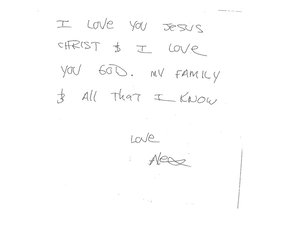 I LOVE YOU JESUS
CHRIST & I LOVE
YOU GOD. MY FAMILY
& All THAT I KNOW
LOVE